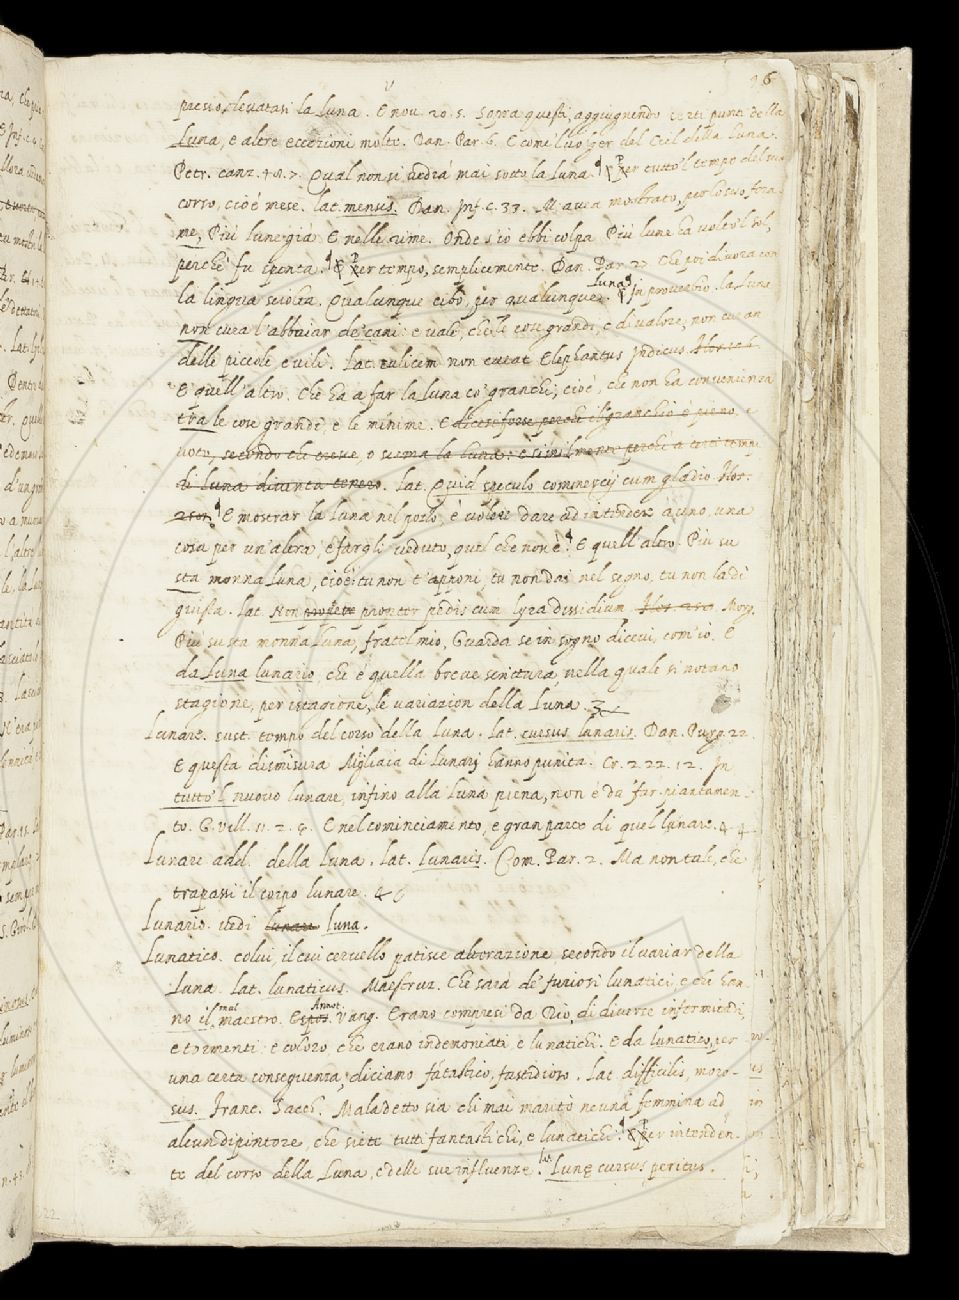 16
presso, levatasi la Luna. E nov. 20. 5. Sopra questi, aggiugnendo certi punti della
Luna, e altre eccezioni molte. Dan. Par. 6. E come 'l volger del Ciel della Luna.
Petr. canz. 48. 7. Qual non si vedrà mai sotto la Luna. ¶ Per tutto 'l tempo del suo
corso, cioè mese. lat. mensis. Dan. Inf. c. 33. M'avea mostrato, per lo suo fora-
me, Più lune già. E nelle rime. Onde s'io ebbi colpa Più lune ha volto 'l sol,
perchè fu spenta. ¶ Per tempo, semplicemente. Dan. Par. 27. Che poi divora con
la lingua sciolta. Qualunque cibo, per qualunque Luna. ¶ In proverbio. la Luna
non cura l'abbaiar de' cani: e vale, che le cose grandi, e di valore, non curan
delle piccole, e vili. Lat. culicem non curat Elephantus Indicus
E quell'altro. Che ha a far la luna co' granchi; cioè, che non ha convenienza
tra le cose grandi, e le minime. E dicesi forse perchè il granchio è pieno, e
voto, secondo che cresce, o scema la luna: e similmente perchè a certi tempi
di luna diventa tenero. Lat. Quid speculo commercij cum gladio Hor.
E mostrar la Luna nel pozzo, è volere dare ad intender a uno, una
cosa per un'altra, e fargli veduto, quel che non è. E quell'altro. Più su
sta monna Luna, cioè: tu non t'apponi, tu non dai nel segno, tu non la dì
giusta. Lat. Non cum lyra dissidium Morg.
Più su sta monna Luna, fratel mio, Guarda se in sogno dicevi, com'io. E
da Luna lunario, che è quella breve scrittura, nella quale si notano
stagione, per istagione, le variazion della Luna.
Lunare. sust. tempo del corso della Luna. Lat. cursus lunaris. Dan. Purg. 22.
E questa dismisura Migliaia di Lunarj hanno punita. Cr. 2. 22. 12. In
tutto 'l nuovo lunare, infino alla Luna piena, non è da far piantamen-
to. G. Vill. 11. 2. 9. E nel cominciamento, e gran parte di quel lunare. 4 4
Lunare add. della Luna. Lat. Lunaris. Com. Par. 2. Ma non tali, che
trapassi il corpo lunare. 46
Lunario. vedi lunare luna.
Lunatico. colui, il cui cervello patisce alterazione secondo il variar della
Luna. Lat. lunaticus. Maestruz. Che sarà de' furiosi lunatici, e che han-
no il mal maestro. Espos. Annot. Vang. Erano compresi da Rio, di diverse infermitadi,
e tormenti: e coloro, che erano indemoniati e lunatichi. E da lunatico, per
una certa conseguenza, diciamo fatastico, fastidioso. Lat. difficilis, moro-
sus. Franc. Sacch. Maladetto sia chi mai maritò neuna femmina ad
alcun dipintore, che siete tutti fantastichi, e lunatichi. ¶ Per intenden-
te del corso della Luna, e delle sue influenze. lat. Lunę cursus peritus.